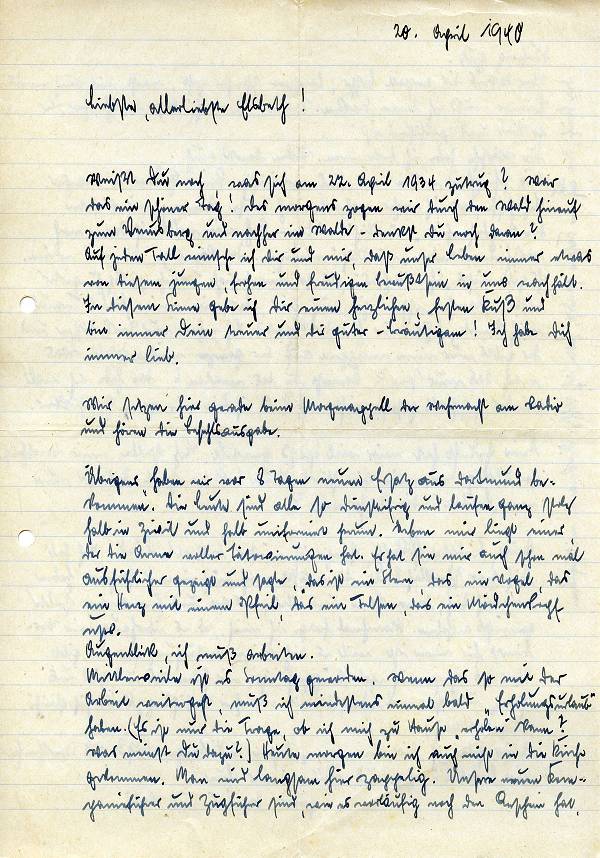 20. April 1940
Liebste, allerliebste Elsbeth!
Weißt Du noch, was sich am 22. April 1934 zutrug? War
das ein schöner Tag! Des morgens zogen wir durch den Wald hinauf
zum Venusberg und nachher im Walde - denkst Du noch daran?
Auf jeden Fall wünsche ich dir und mir, daß unser Leben immer etwas
von diesem jungen, frohen und freudigen Bewußtsein in uns nachhält.
In diesem Sinne gebe ich Dir einen herzlichen, festen Kuß und
bin immer Dein treuer und Dir guter - Bräutigam! Ich habe Dich
immer lieb.
Wir sitzen hier gerade beim der Wehrmacht am Radio
und hören die Befehlsausgabe.
Übrigens haben wir vor 8 Tagen neuen Ersatz aus Dortmund be-
kommen. Die Leute sind alle so diensteifrig und laufen ganz stolz
halb in Zivil und halb uniformiert herum. Neben mir liegt einer,
der die Arme voller Tätowierungen hat. Er hat sie mir auch schon mal
ausführlicher gezeigt und sagte „das ist ein Stern, das ein Vogel, das
ein Herz mit einem Pfeil, das ein Felsen, das ein Mädchenkopf
usw.
Augenblick, ich muß arbeiten.
Mittlerweile ist es Sonntag geworden. Wenn das so mit der
Arbeit weitergeht, muß ich mindestens einmal bald „Erholungsurlaub“
haben. (Es ist nur die Frage, ob ich mich zu Hause „erholen“ kann?
Was meinst Du dazu?) Heute morgen bin ich auch nicht in die Kirche
gekommen. Man wird langsam hier zappelig. Unsere neuen Kom-
panieführer und Zugführer sind, wie es vorläufig noch den Anschein hat,